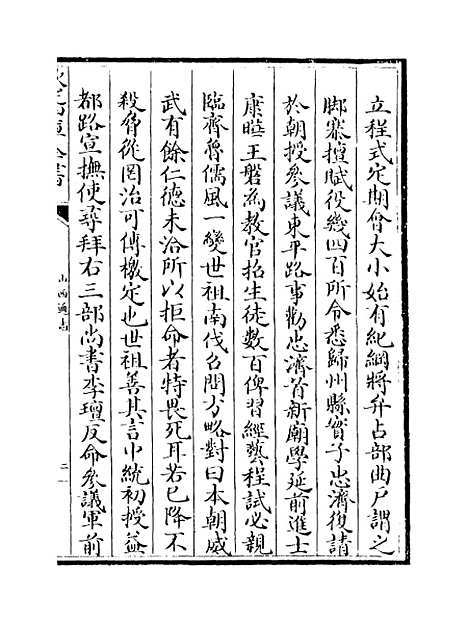 立程式定期會大小始有紀綱將弁占部曲戶謂之
脚寨擅賦役幾四百所令悉歸州縣實子忠濟復請
於朝授叅議東平路事勸忠濟首新廟學延前進士
康曄王磐為教官招生徒數百俾習經藝程試必親
臨齊魯儒風一變世祖南伐召問方略對曰本朝威
武有餘仁德未洽所以拒命者特畏死耳若已降不
殺脅從罔治可傳檄定也世祖善其言中統初授益
都路宣撫使尋拜右三部尚書李璮反命叅議軍前
欽定四庫全書
山西通志